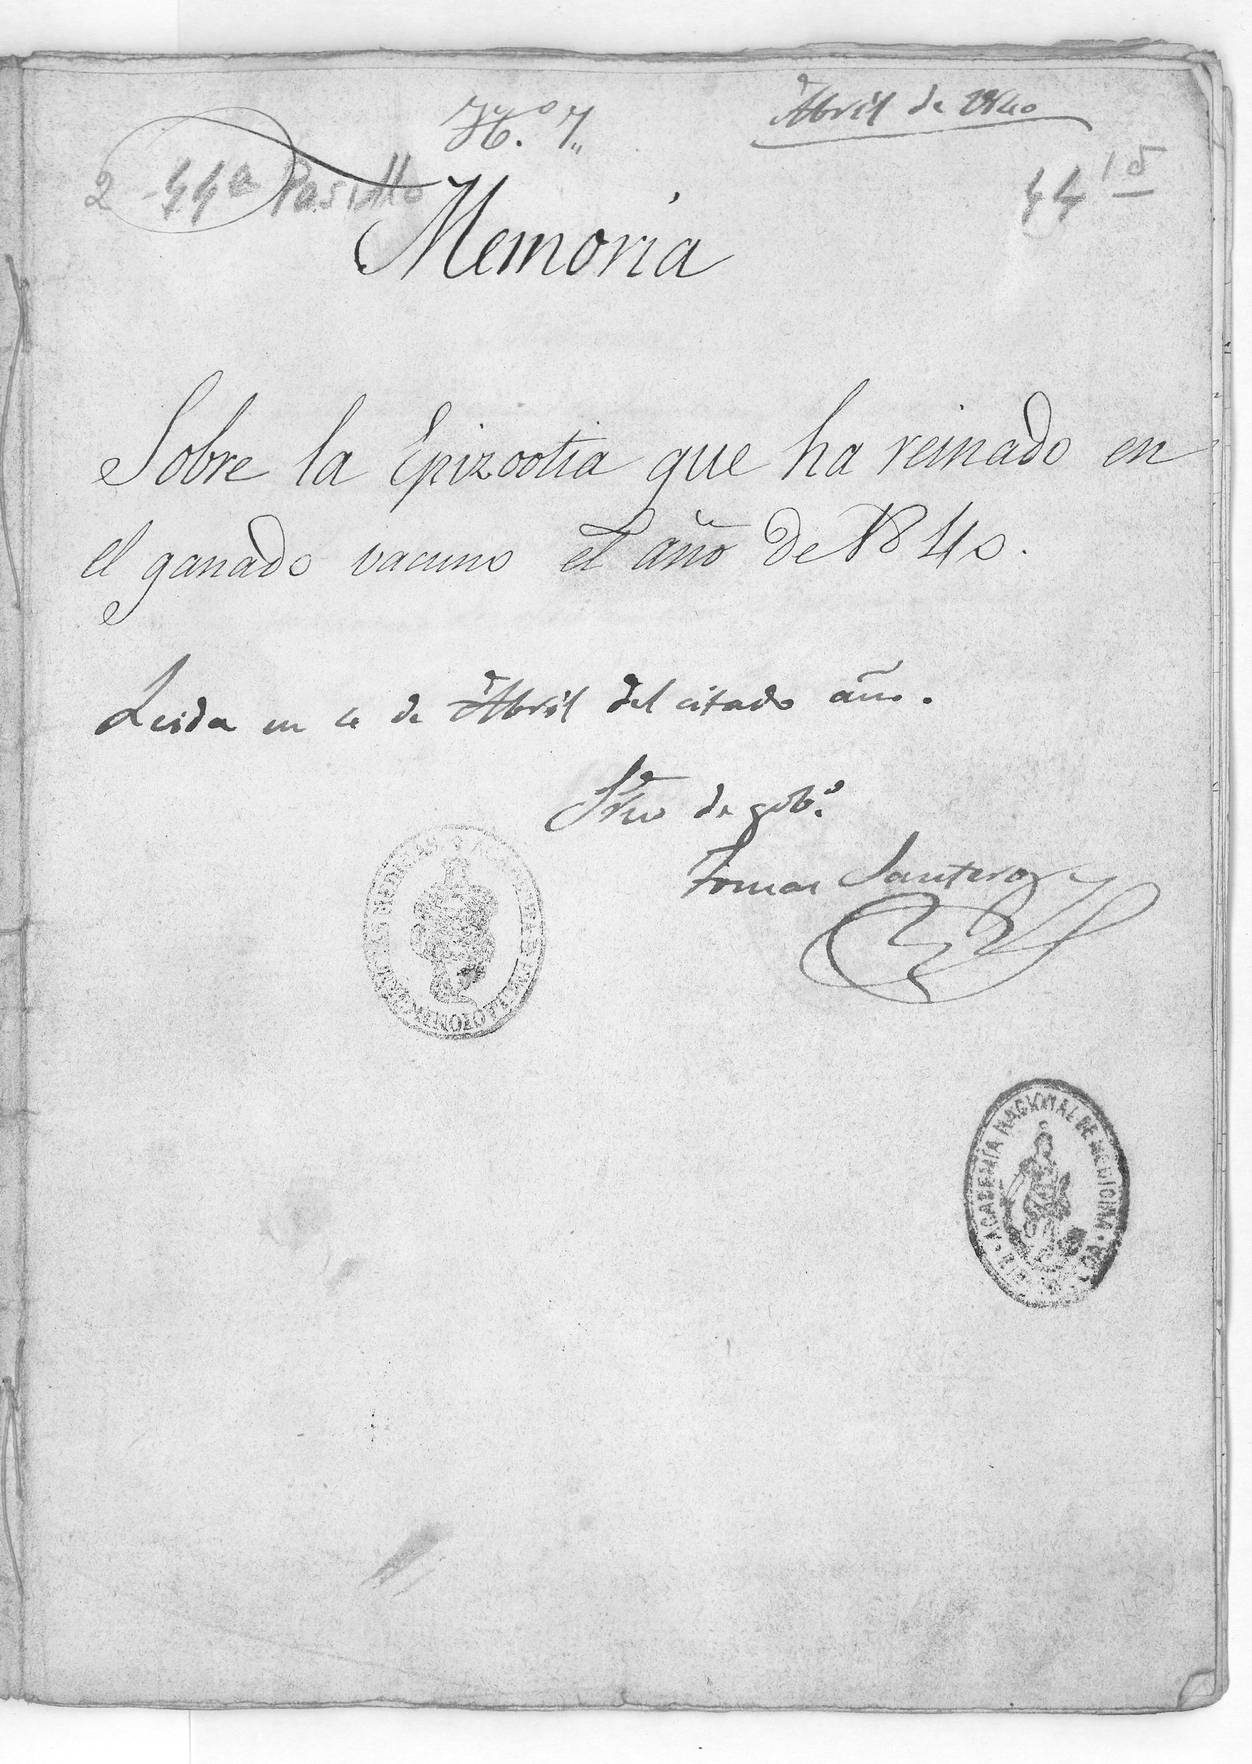 N.º 7,,
Abril de 1840
2 44ª Pasillo
44 15
Memoria
Sobre la Epizootia que ha reinado en
el ganado vacuno el año de 1840.
Leida en 4 de Abril del citado año.
Srio de gobº.
Tomas Santero
ACADEMIA NACIONAL DE MEDICINA